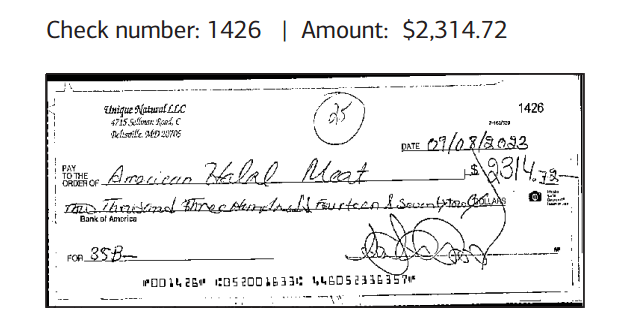 Check number: 1426 | Amount: $2,314.72
Unique Natural LLC
4715 Sellman Road, C
Beltsville, MD 20705
25
1426
DATE 09/08/2023
PAY TO THE ORDER OF American Halal Meat $2314.72
Two Thousand Three Hundred Fourteen & Seventy two DOLLARS
Bank of America
FOR 35B
⑈001426⑈ ⑆052001633⑆ 446052336357⑈